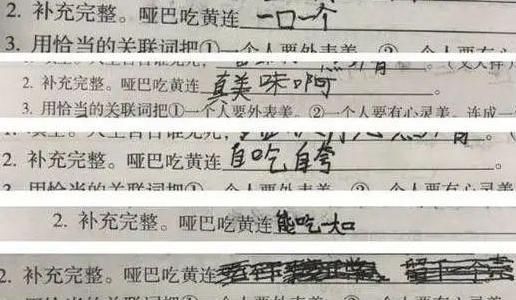 2. 补充完整。哑巴吃黄连 一口一个
3. 用恰当的关联词把①一个人要外表美。②一个人要有心
2. 补充完整。哑巴吃黄连 真美味啊 。
3. 用恰当的关联词把①一个人要外表美。②一个人要有心灵美。连成一
2. 补充完整。哑巴吃黄连 自吃自夸 。
2. 补充完整。哑巴吃黄连 能吃一口
2. 补充完整。哑巴吃黄连